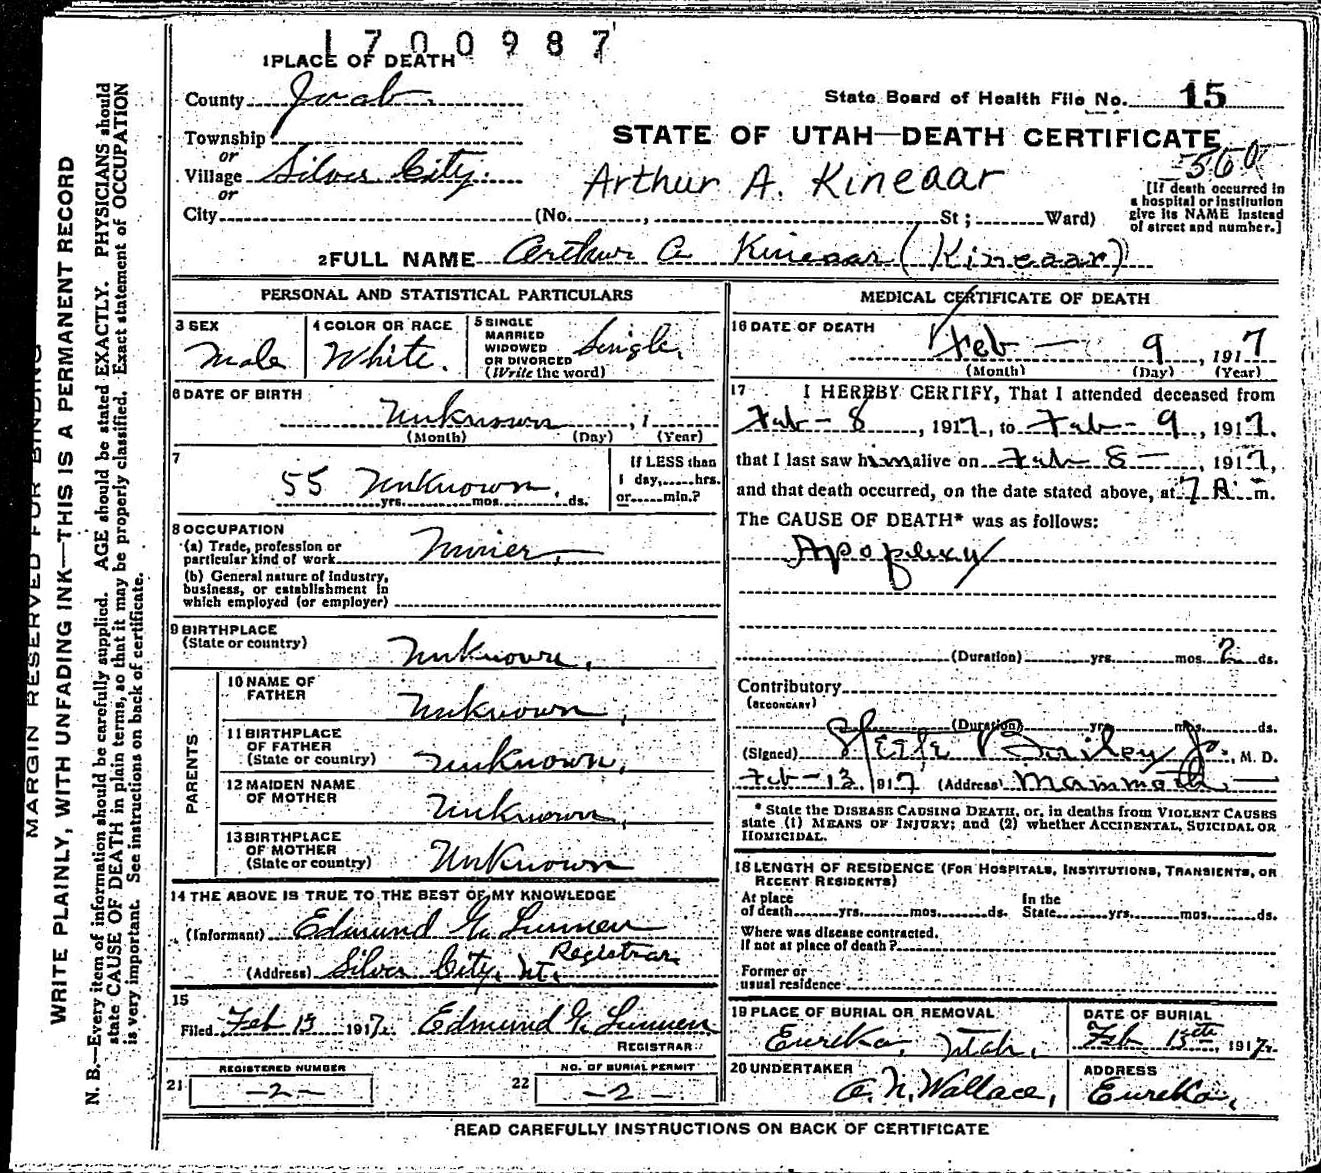 1700987
1 PLACE OF DEATH
County Juab. State Board of Health File No. 15
Township
or
STATE OF UTAH—DEATH CERTIFICATE
Village Silver City. Arthur A. Kineaar 560
or
[If death occurred in
a hospital or institution
give its NAME instead
of street and number.]
City (No. , St ; Ward)
2 FULL NAME Arthur A Kineaar (Kineaar)
PERSONAL AND STATISTICAL PARTICULARS
3 SEX
Male
4 COLOR OR RACE
White.
5 SINGLE
MARRIED
WIDOWED
OR DIVORCED
(Write the word)
Single.
6 DATE OF BIRTH
Unknown , 1
(Month) (Day) (Year)
7
55 Unknown.
yrs. mos. ds.
If LESS than
1 day, hrs.
or min.?
8 OCCUPATION
(a) Trade, profession or
particular kind of work Miner,
(b) General nature of industry,
business, or establishment in
which employed (or employer)
9 BIRTHPLACE
(State or country) Unknown.
PARENTS
10 NAME OF
FATHER Unknown,
11 BIRTHPLACE
OF FATHER
(State or country) Unknown,
12 MAIDEN NAME
OF MOTHER Unknown,
13 BIRTHPLACE
OF MOTHER
(State or country) Unknown
14 THE ABOVE IS TRUE TO THE BEST OF MY KNOWLEDGE
(Informant) Edmund
Registrar.
(Address) Silver City, Ut.
15
Filed Feb 15 1917. Edmund
REGISTRAR
21 REGISTERED NUMBER
-2-
22 NO. OF BURIAL PERMIT
-2
MEDICAL CERTIFICATE OF DEATH
16 DATE OF DEATH
Feb — 9 , 1917
(Month) (Day) (Year)
17 I HEREBY CERTIFY, That I attended deceased from
Feb - 8 , 1917, to Feb - 9 , 1917.
that I last saw him alive on Feb 8 — , 1917,
and that death occurred, on the date stated above, at 7 A m.
The CAUSE OF DEATH* was as follows:
Apoplexy
(Duration) yrs. mos. 2 ds.
Contributory
(SECONDARY)
(Duration) yrs. mos. ds.
(Signed) Steele Bailey Jr., M. D.
Feb - 13 1917 (Address) Mammoth
* State the DISEASE CAUSING DEATH, or, in deaths from VIOLENT CAUSES
state (1) MEANS OF INJURY; and (2) whether ACCIDENTAL, SUICIDAL OR
HOMICIDAL.
18 LENGTH OF RESIDENCE (FOR HOSPITALS, INSTITUTIONS, TRANSIENTS, OR
RECENT RESIDENTS)
At place In the
of death yrs. mos. ds. State yrs. mos. ds.
Where was disease contracted.
If not at place of death?
Former or
usual residence
19 PLACE OF BURIAL OR REMOVAL
Eureka, Utah.
DATE OF BURIAL
Feb 15th, 1917.
20 UNDERTAKER
A. N. Wallace,
ADDRESS
Eureka,
READ CAREFULLY INSTRUCTIONS ON BACK OF CERTIFICATE
MARGIN RESERVED FOR BINDING
WRITE PLAINLY, WITH UNFADING INK—THIS IS A PERMANENT RECORD
N. B.—Every item of information should be carefully supplied. AGE should be stated EXACTLY. PHYSICIANS should
state CAUSE OF DEATH in plain terms, so that it may be properly classified. Exact statement of OCCUPATION
is very important. See instructions on back of certificate.